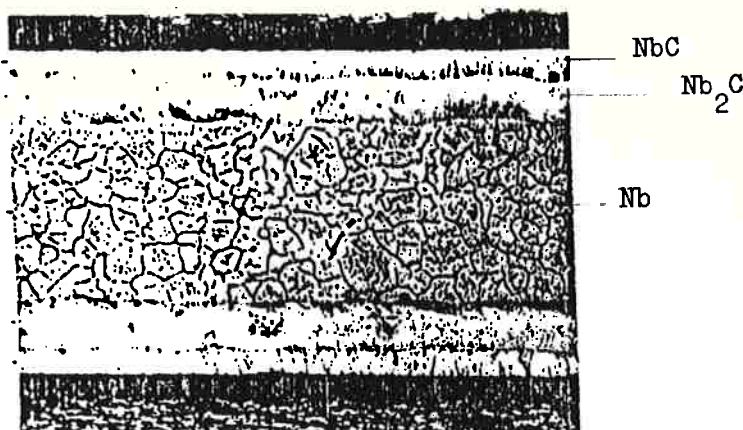 NbC
Nb₂C
Nb